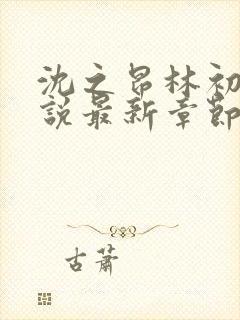 沈之昂林初
說最新章節
古蕭